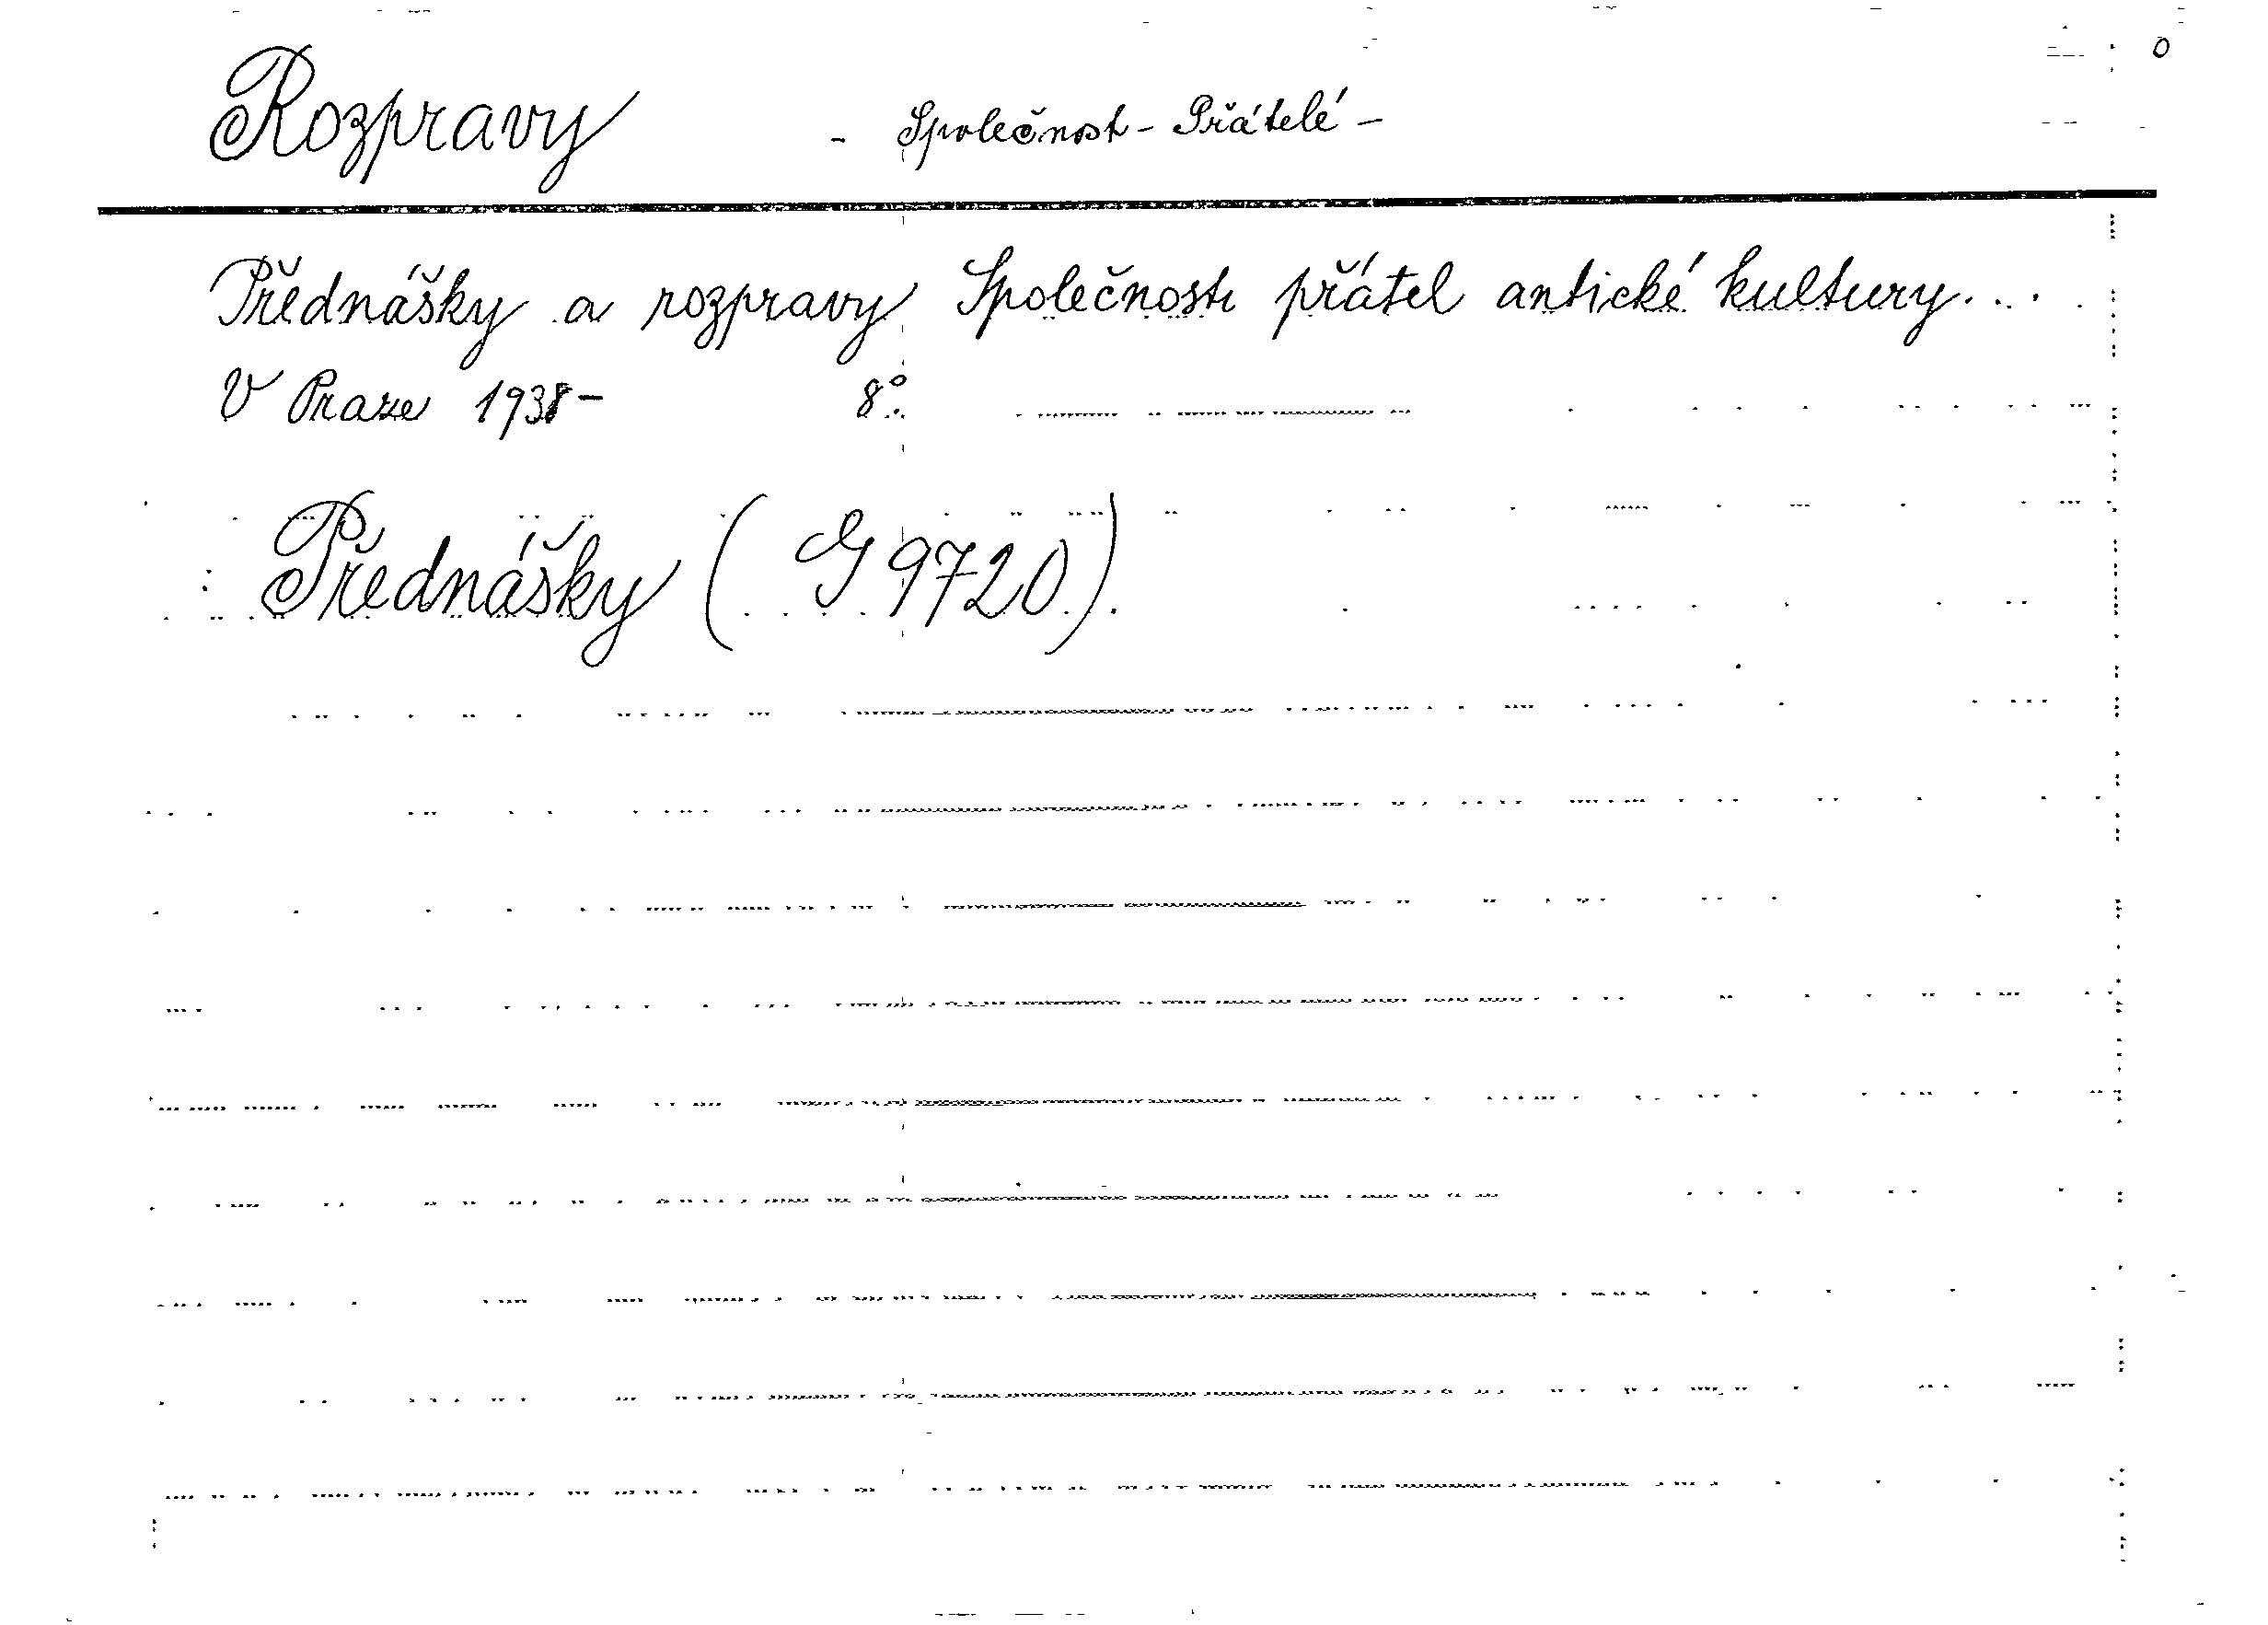 Rozpravy - Společnost - Přátelé -
Přednášky a rozpravy Společnosti přátel antické kultury...
V Praze 1938- 8°.
Přednášky (G 9720).